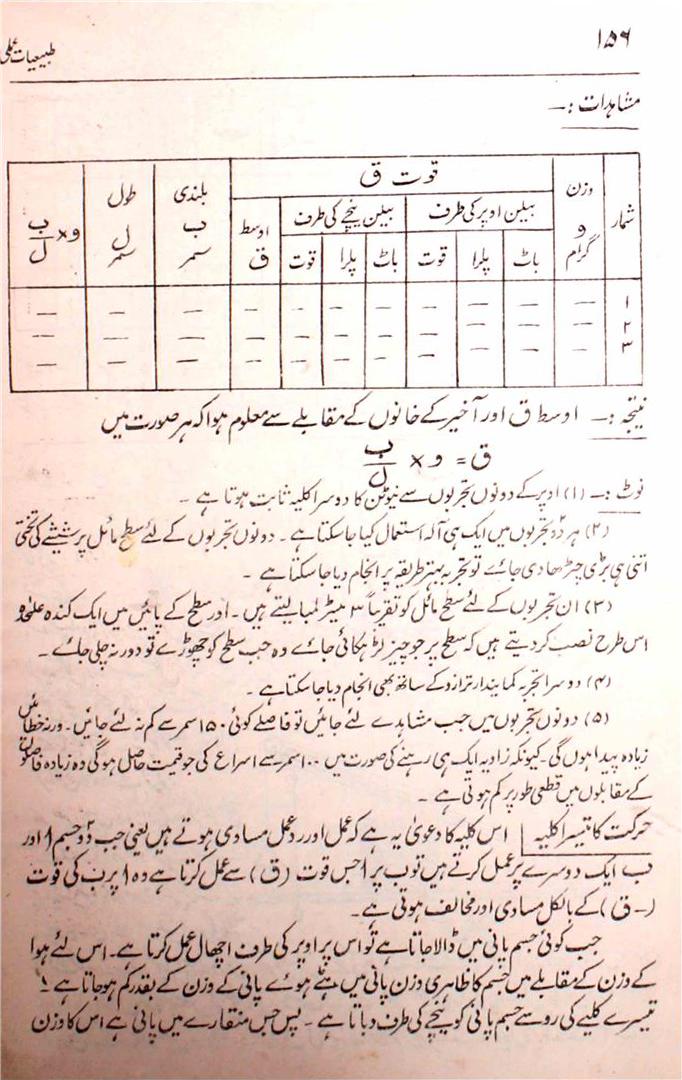 ۱۵۶
طبیعیات عملی
مشاہدات :۔
شمار
وزن و گرام
قوت ق
بلندی ب سمر
طول ل سمر
و × ب/ل
بیلن اوپر کی طرف
بیلن نیچے کی طرف
اوسط ق
باٹ پلڑا قوت
باٹ پلڑا قوت
۱ — — — — — — — — — — —
۲ — — — — — — — — — — —
۳ — — — — — — — — — — —
نتیجہ :۔ اوسط ق اور آخیر کے خانوں کے مقابلے سے معلوم ہوا کہ ہر صورت میں
ق = و × ب/ل
نوٹ :۔ (۱) اوپر کے دونوں تجربوں سے نیوٹن کا دوسرا کلیہ ثابت ہوتا ہے ۔
(۲) ہر دو تجربوں میں ایک ہی آلہ استعمال کیا جا سکتا ہے ۔ دونوں تجربوں کے لئے سطح مائل پر شیشے کی تختی
اتنی ہی بڑی چڑھا دی جائے تو تجربہ بہتر طریقہ پر انجام دیا جا سکتا ہے ۔
(۳) ان تجربوں کے لئے سطح مائل کو تقریباً ۳ میٹر لمبا لیتے ہیں ۔ اور سطح کے پائیں میں ایک کندہ علٰحدہ
اس طرح نصب کر دیتے ہیں کہ سطح پر جو چیز لڑھکائی جائے وہ جب سطح کو چھوڑے تو دور نہ چلی جائے ۔
(۴) دوسرا تجربہ کمانیدار ترازو کے ساتھ بھی انجام دیا جا سکتا ہے ۔
(۵) دونوں تجربوں میں جب مشاہدے لئے جائیں تو فاصلے کوئی ۱۵۰ سمر سے کم نہ لئے جائیں ۔ ورنہ خطائیں
زیادہ پیدا ہوں گی ۔ کیونکہ زاویہ ایک ہی رہنے کی صورت میں ۱۰۰ سمر سے اسراع کی جو قیمت حاصل ہوگی وہ زیادہ فاصلوں
کے مقابلوں میں قطعی طور پر کم ہوتی ہے ۔
حرکت کا تیسرا کلیہ | اس کلیہ کا دعویٰ یہ ہے کہ عمل اور ردعمل مساوی ہوتے ہیں یعنی جب دو جسم ا اور
ب ایک دوسرے پر عمل کرتے ہیں تو ب پر ا جس قوت (ق) سے عمل کرتا ہے وہ ا پر ب کی قوت
(−ق) کے بالکل مساوی اور مخالف ہوتی ہے ۔
جب کوئی جسم پانی میں ڈالا جاتا ہے تو اس پر اوپر کی طرف اچھال عمل کرتا ہے ۔ اس لئے ہوا
کے وزن کے مقابلے میں جسم کا ظاہری وزن پانی میں ہٹے ہوئے پانی کے وزن کے بقدر کم ہو جاتا ہے ۔
تیسرے کلیے کی رو سے جسم پانی کو نیچے کی طرف دباتا ہے ۔ پس جس منقارے میں پانی ہے اس کا وزن